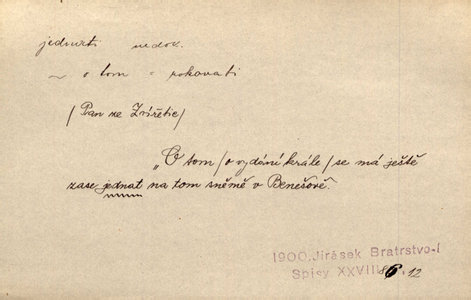 jednati nedok.
~ o tom = rokovati
/Pan ze Zvířetic/
„O tom /o vydání krále/ se má ještě
zase jednat na tom sněmě v Benešově.
1900. Jirásek Bratrstvo-I
Spisy XXVIII 86.12